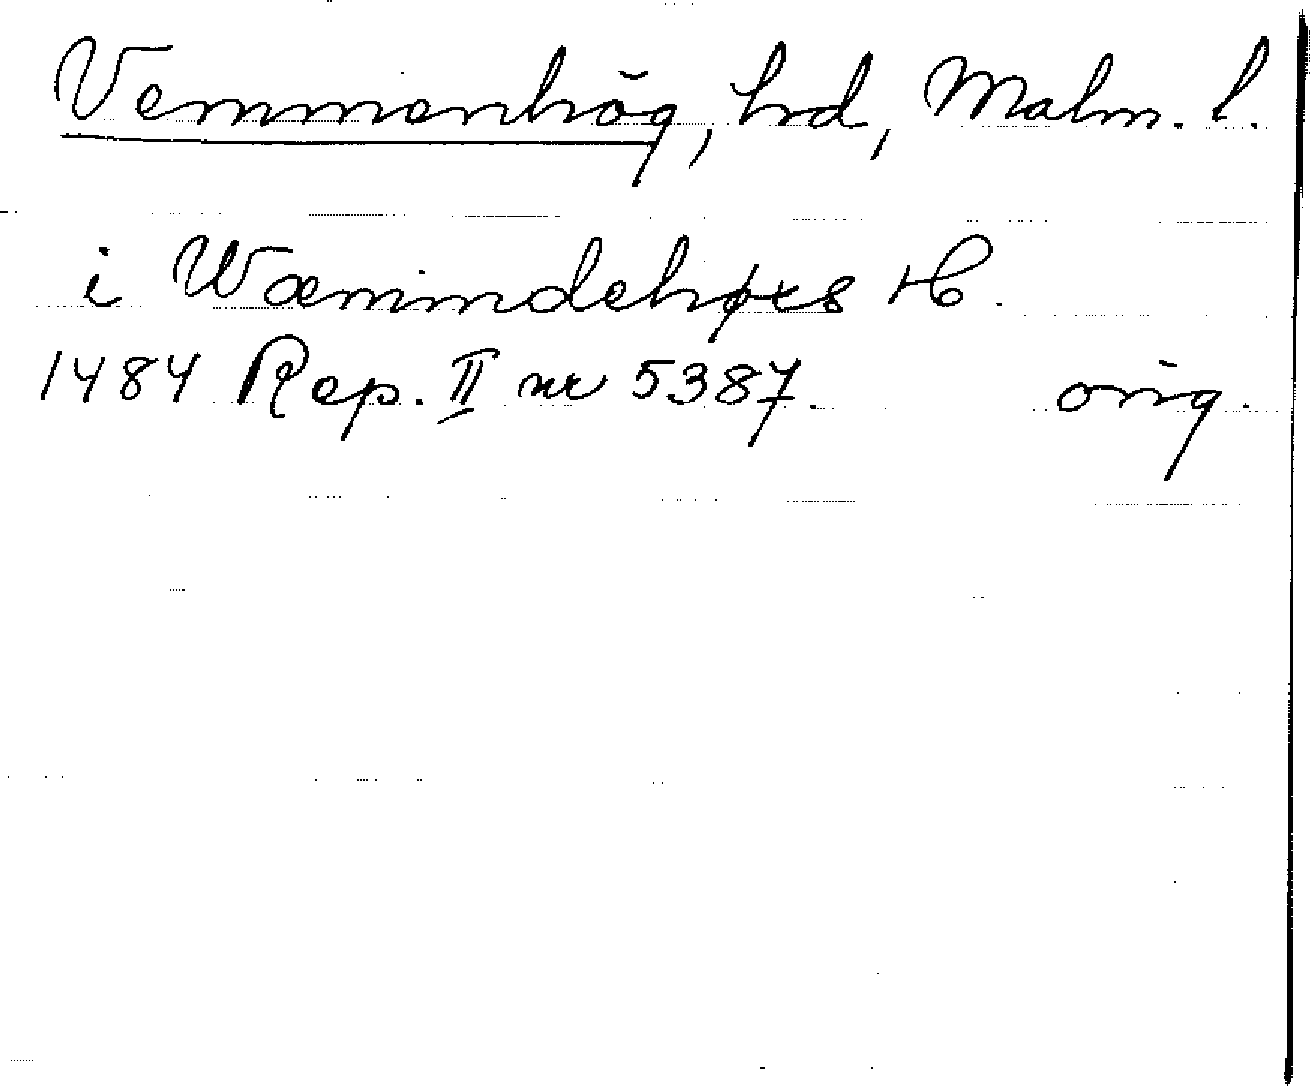 Vemmenhög, hrd, Malm. l.
i Wæmindehøxs H.
1484 Rep. II nr 5387. orig.